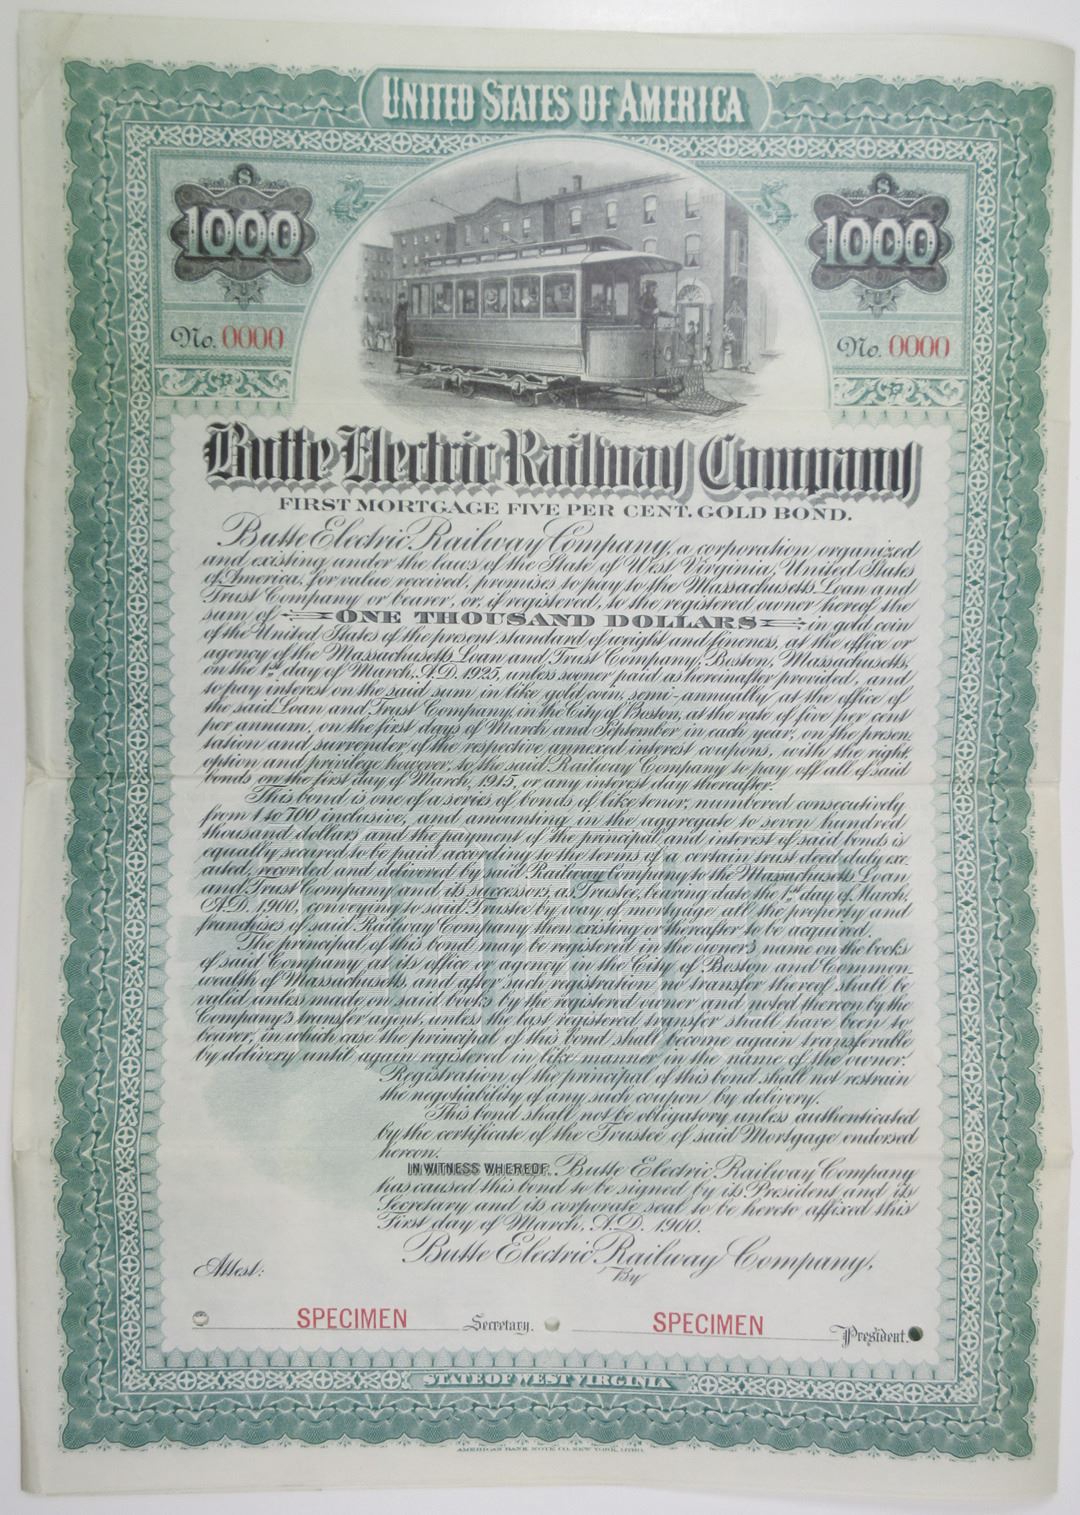 UNITED STATES OF AMERICA
$ $
1000 1000
No. 0000 No. 0000
Butte Electric Railway Company
FIRST MORTGAGE FIVE PER CENT. GOLD BOND.
Butte Electric Railway Company, a corporation organized
and existing under the laws of the State of West Virginia, United States
of America, for value received, promises to pay to the Massachusetts Loan and
Trust Company or bearer, or, if registered, to the registered owner hereof the
sum of ONE THOUSAND DOLLARS in gold coin
of the United States of the present standard of weight and fineness, at the office or
agency of the Massachusetts Loan and Trust Company, Boston, Massachusetts,
on the 1st day of March, A.D. 1925, unless sooner paid as hereinafter provided, and
to pay interest on the said sum in like gold coin, semi-annually at the office of
the said Loan and Trust Company, in the City of Boston, at the rate of five per cent
per annum, on the first days of March and September in each year, on the presen-
tation and surrender of the respective annexed interest coupons, with the right,
option and privilege however, to the said Railway Company to pay off all of said
bonds on the first day of March, 1915, or any interest day thereafter.
This bond is one of a series of bonds of like tenor, numbered consecutively
from 1 to 700 inclusive, and amounting in the aggregate to seven hundred
thousand dollars and the payment of the principal and interest of said bonds is
equally secured to be paid according to the terms of a certain trust deed duly exe-
cuted, recorded and delivered by said Railway Company to the Massachusetts Loan
and Trust Company and its successors, as Trustee, bearing date the 1st day of March,
A.D. 1900, conveying to said Trustee by way of mortgage all the property and
franchises of said Railway Company then existing or thereafter to be acquired.
The principal of this bond may be registered in the owner's name on the books
of said Company at its office or agency in the City of Boston and Common-
wealth of Massachusetts, and after such registration no transfer thereof shall be
valid unless made on said books by the registered owner and noted thereon by the
Company's transfer agent, unless the last registered transfer shall have been to
bearer, in which case the principal of this bond shall become again transferable
by delivery until again registered in like manner in the name of the owner.
Registration of the principal of this bond shall not restrain
the negotiability of any such coupon by delivery.
This bond shall not be obligatory unless authenticated
by the certificate of the Trustee of said Mortgage endorsed
hereon.
IN WITNESS WHEREOF, Butte Electric Railway Company
has caused this bond to be signed by its President and its
Secretary and its corporate seal to be hereto affixed this
First day of March, A.D. 1900.
Butte Electric Railway Company,
Attest: By
SPECIMEN Secretary. SPECIMEN President.
STATE OF WEST VIRGINIA
AMERICAN BANK NOTE CO. NEW YORK.